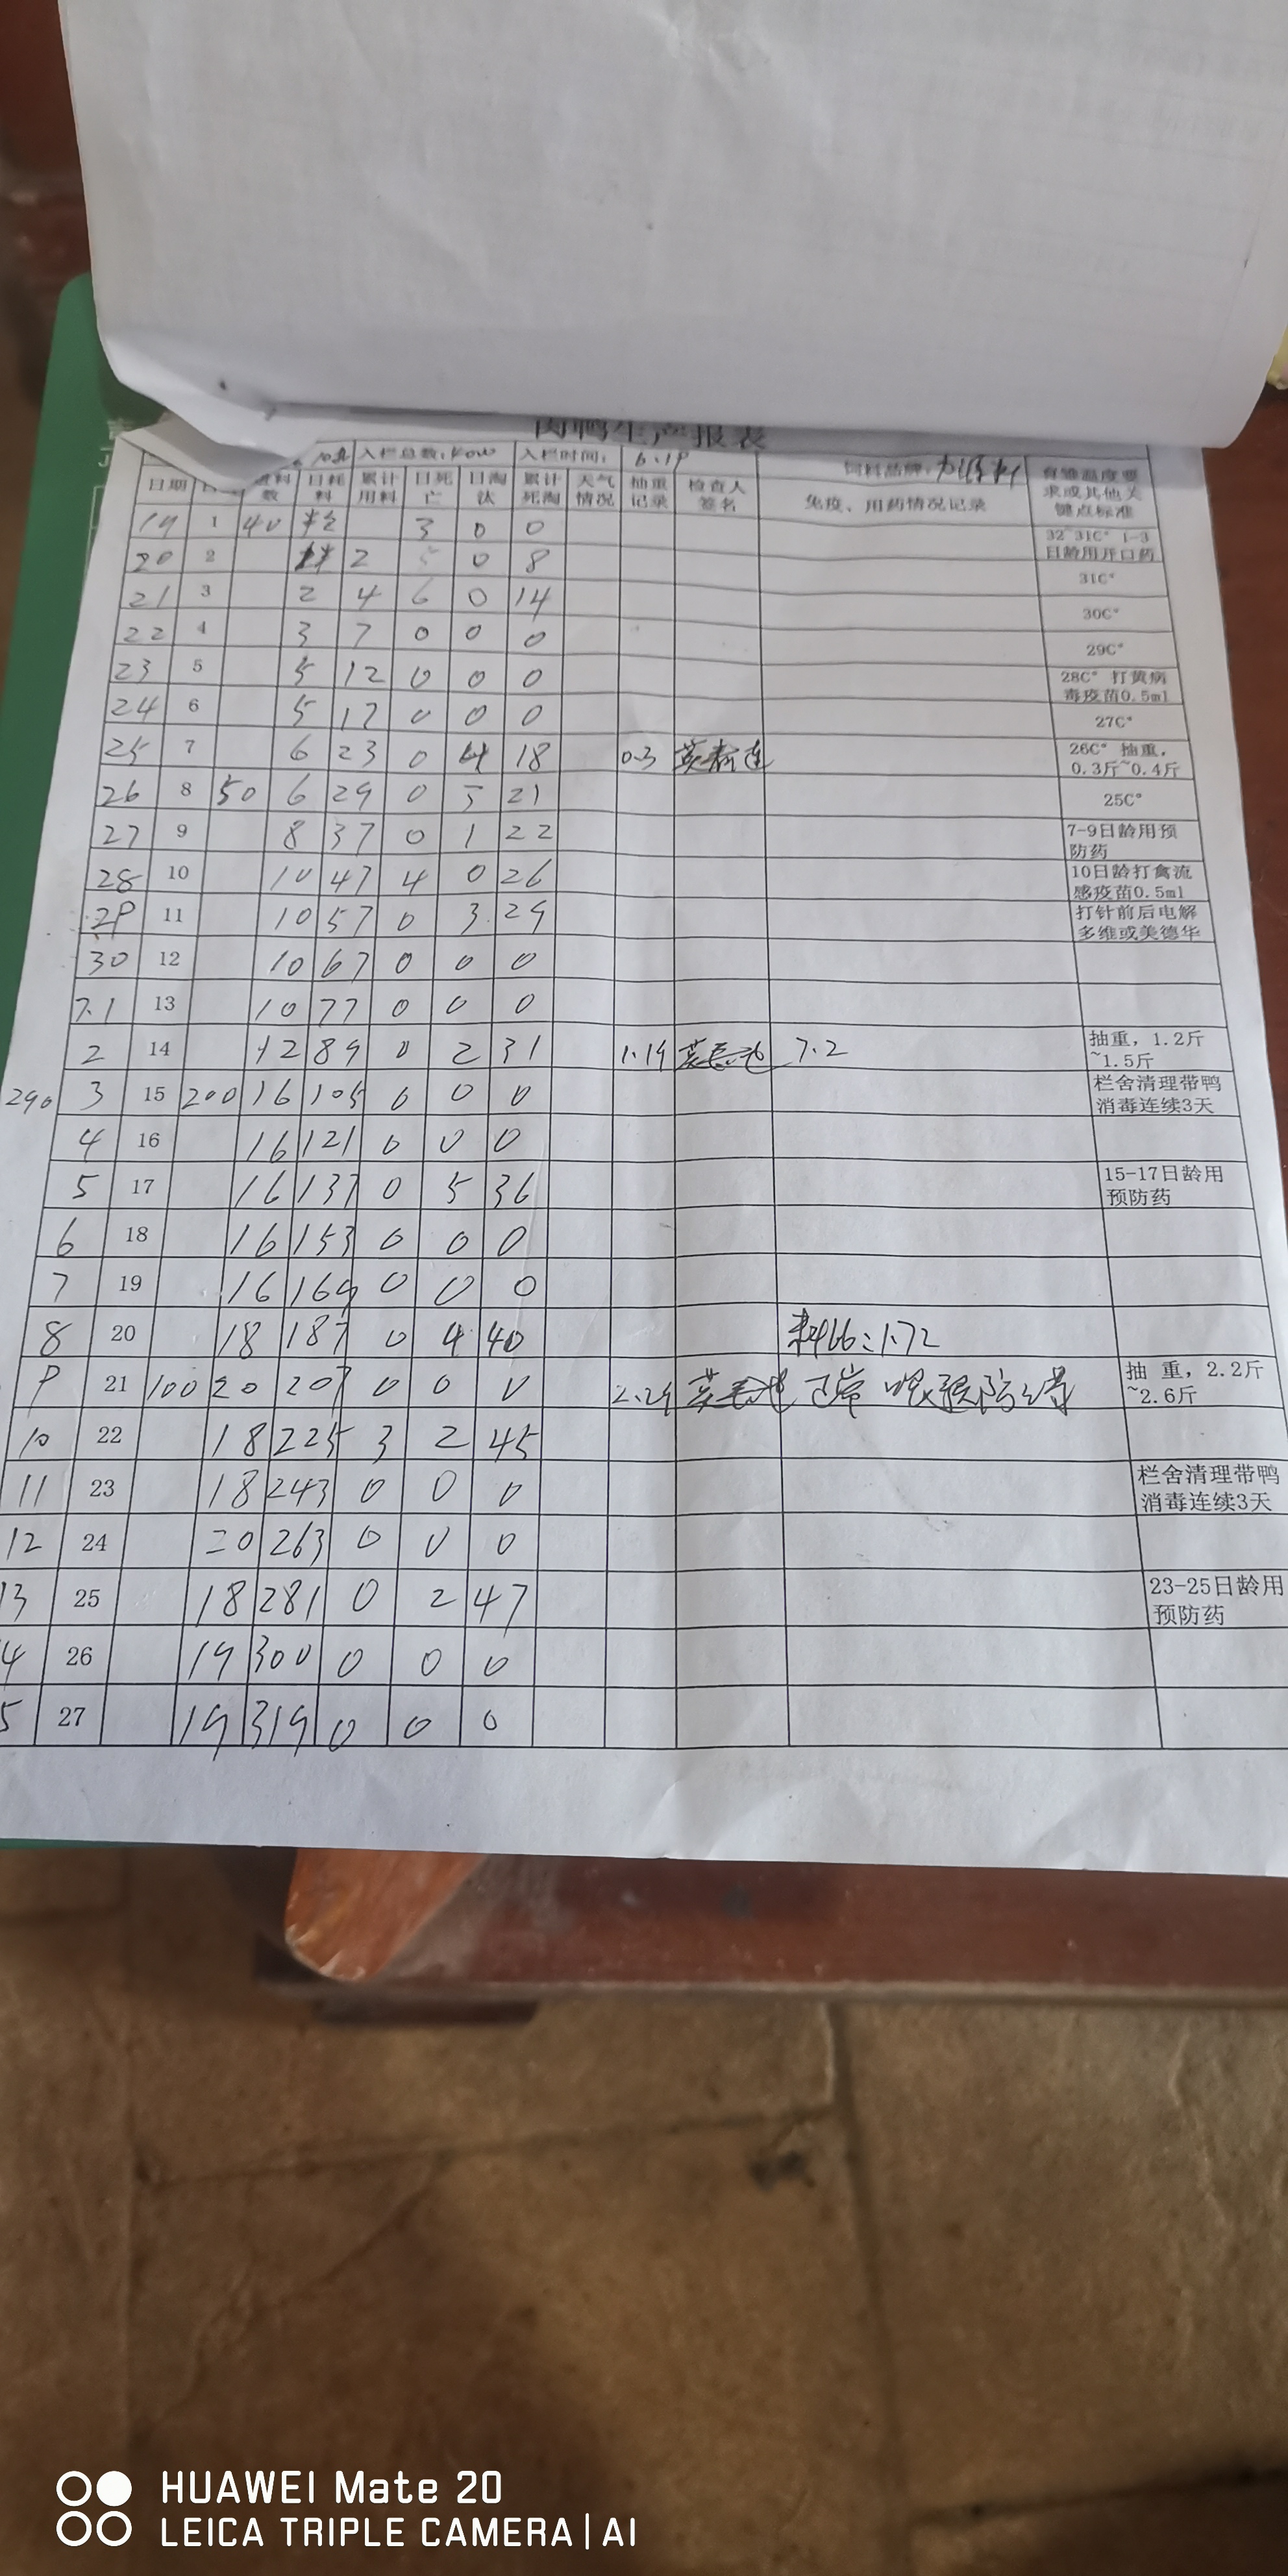 肉鸭生产报表
入栏总数: 入栏时间: 6.19 饲料品牌:
日期 进料数 日耗料 累计用料 日死亡 日淘汰 累计死淘 天气情况 抽重记录 检查人签名 免疫、用药情况记录 育雏温度要求或其他关键点标准
19 1 40 3 0 0 32~31C° 1-3日龄用开口药
20 2 2 5 0 8 31C°
21 3 2 4 6 0 14 30C°
22 4 3 7 0 0 0 29C°
23 5 5 12 0 0 0 28C° 打黄病毒疫苗0.5ml
24 6 5 17 0 0 0 27C°
25 7 6 23 0 4 18 0.3 26C° 抽重，0.3斤~0.4斤
26 8 50 6 29 0 5 21 25C°
27 9 8 37 0 1 22 7-9日龄用预防药
28 10 10 47 4 0 26 10日龄打禽流感疫苗0.5ml
29 11 10 57 0 3 29 打针前后电解多维或美德华
30 12 10 67 0 0 0
7.1 13 10 77 0 0 0
2 14 12 89 0 2 31 1.19 7.2 抽重，1.2斤~1.5斤
290 3 15 200 16 105 0 0 0 栏舍清理带鸭消毒连续3天
4 16 16 121 0 0 0
5 17 16 137 0 5 36 15-17日龄用预防药
6 18 16 153 0 0 0
7 19 16 169 0 0 0
8 20 18 187 0 4 40 料66:1.72
9 21 100 20 207 0 0 0 2.29 正常 抽 重，2.2斤~2.6斤
10 22 18 225 3 2 45
11 23 18 243 0 0 0 栏舍清理带鸭消毒连续3天
12 24 20 263 0 0 0
13 25 18 281 0 2 47 23-25日龄用预防药
4 26 19 300 0 0 0
5 27 19 319 0 0 0
HUAWEI Mate 20
LEICA TRIPLE CAMERA | AI